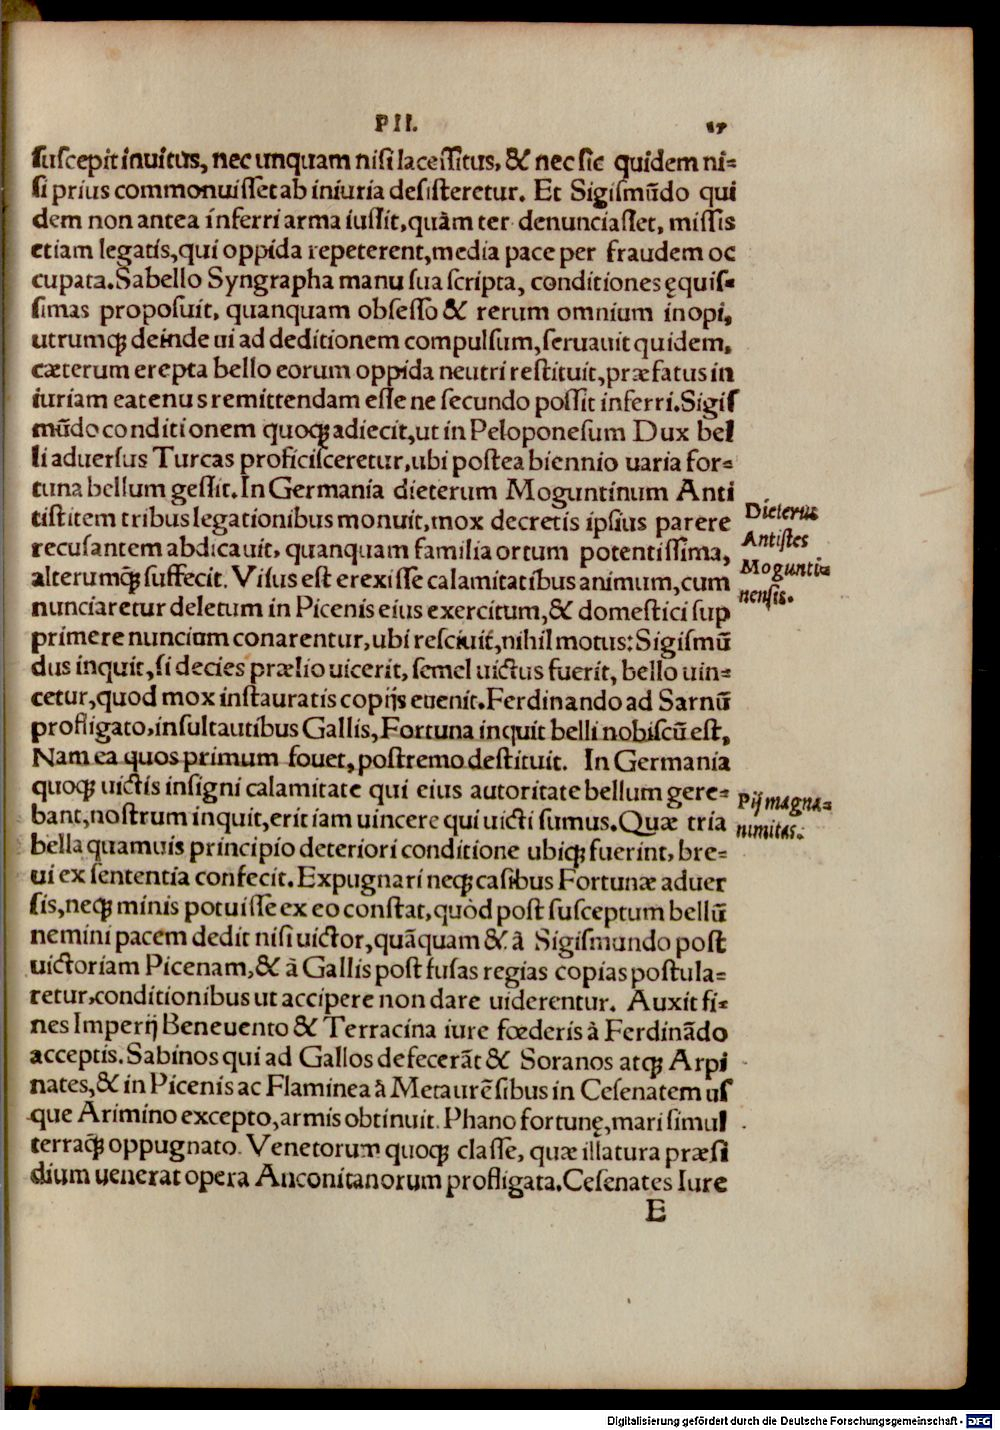 PII. 17
suscepit inuitus, nec unquam nisi lacessitus, & nec sic quidem ni=
si prius commonuisset ab iniuria desisteretur. Et Sigismũdo qui
dem non antea inferri arma iussit, quàm ter denunciasset, missis
etiam legatis, qui oppida repeterent, media pace per fraudem oc
cupata. Sabello Syngrapha manu sua scripta, conditiones ęquis=
simas proposuit, quanquam obsesso & rerum omnium inopi,
utrumq; deinde ui ad deditionem compulsum, seruauit quidem,
cæterum erepta bello eorum oppida neutri restituit, præfatus in
iuriam eatenus remittendam esse ne secundo possit inferri. Sigis
mũdo conditionem quoq; adiecit, ut in Peloponesum Dux bel
li aduersus Turcas proficisceretur, ubi postea biennio uaria for=
tuna bellum gessit. In Germania dieterum Moguntinum Anti
tistitem tribus legationibus monuit, mox decretis ipsius parere
recusantem abdicauit, quanquam familia ortum potentissima,
alterumq; suffecit. Visus est erexisse calamitatibus animum, cum
nunciaretur deletum in Picenis eius exercitum, & domestici sup
primere nuncium conarentur, ubi resciuit, nihil motus: Sigismũ
dus inquit, si decies prælio uicerit, semel uictus fuerit, bello uin=
cetur, quod mox instauratis copijs euenit. Ferdinando ad Sarnũ
profligato, insultautibus Gallis, Fortuna inquit belli nobiscũ est,
Nam ea quos primum fouet, postremo destituit. In Germania
quoq; uictis insigni calamitate qui eius autoritate bellum gere=
bant, nostrum inquit, erit iam uincere qui uicti sumus. Quæ tria
bella quamuis principio deteriori conditione ubiq; fuerint, bre=
ui ex sententia confecit. Expugnari neq; casibus Fortunæ aduer
sis, neq; minis potuisse ex eo constat, quòd post susceptum bellũ
nemini pacem dedit nisi uictor, quãquam & à Sigismundo post
uictoriam Picenam, & à Gallis post fusas regias copias postula=
retur, conditionibus ut accipere non dare uiderentur. Auxit fi=
nes Imperij Beneuento & Terracina iure fœderis à Ferdinãdo
acceptis. Sabinos qui ad Gallos defecerãt & Soranos atq; Arpi
nates, & in Picenis ac Flaminea à Metaurẽsibus in Cesenatem us
que Arimino excepto, armis obtinuit. Phano fortunę, mari simul
terraq; oppugnato. Venetorum quoq; classe, quæ illatura præsi
dium uenerat opera Anconitanorum profligata. Cesenates Iure
E
Dieterus
Antistes
Mogunti=
nensis.
Pij magna=
nimitas.
Digitalisierung gefördert durch die Deutsche Forschungsgemeinschaft - DFG